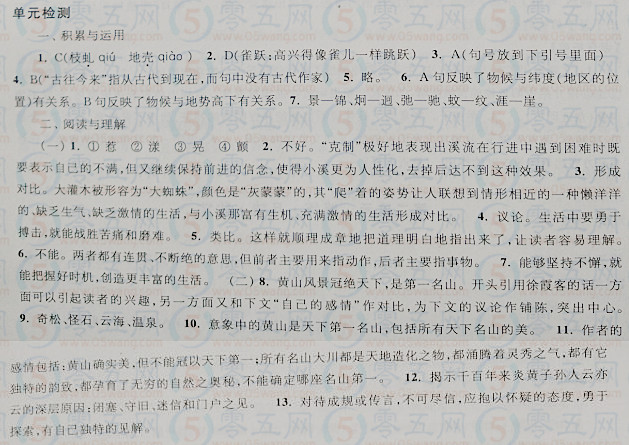 单元检测
一、积累与运用
1. C(枝虬 qiú 地壳 qiào) 2. D(雀跃:高兴得像雀儿一样跳跃) 3. A(句号放到下引号里面)
4. B(“古往今来”指从古代到现在,而句中没有古代作家) 5. 略。 6. A 句反映了物候与纬度(地区的位
置)有关系。B 句反映了物候与地势高下有关系。7. 景—锦、炯—迥、弛—驰、蚊—纹、涯—崖。
二、阅读与理解
(一) 1. ① 惹 ② 漾 ③ 晃 ④ 颤 2. 不好。“克制”极好地表现出溪流在行进中遇到困难时既
要表示自己的不满,但又继续保持前进的信念,使得小溪更为人性化,去掉后达不到这种效果。 3. 形成
对比。大灌木被形容为“大蜘蛛”,颜色是“灰蒙蒙”的,其“爬”着的姿势让人联想到情形相近的一种懒洋洋
的、缺乏生气、缺乏激情的生活,与小溪那富有生机、充满激情的生活形成对比。 4. 议论。生活中要勇于
搏击,就能战胜苦痛和磨难。 5. 类比。这样就顺理成章地把道理明白地指出来了,让读者容易理解。
6. 不能。两者都有连贯、不断绝的意思,但前者主要用来指动作,后者主要指事物。 7. 能够坚持不懈,就
能把握好时机,创造更丰富的生活。 (二) 8. 黄山风景冠绝天下,是第一名山。开头引用徐霞客的话一方
面可以引起读者的兴趣,另一方面又和下文“自己的感情”作对比,为下文的议论作铺陈,突出中心。
9. 奇松、怪石、云海、温泉。 10. 意象中的黄山是天下第一名山,包括所有天下名山的美。 11. 作者的
感情包括:黄山确实美,但不能冠以天下第一;所有名山大川都是天地造化之物,都涌腾着灵秀之气,都有它
独特的韵致,都孕育了无穷的自然之奥秘,不能确定哪座名山第一。 12. 揭示千百年来炎黄子孙人云亦
云的深层原因:闭塞、守旧、迷信和门户之见。 13. 对待成规或传言,不可尽信,应抱以怀疑的态度,勇于
探索,有自己独特的见解。